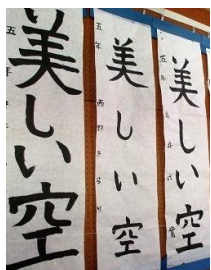 美しい空
五年
美しい空
五年
美しい空
五年